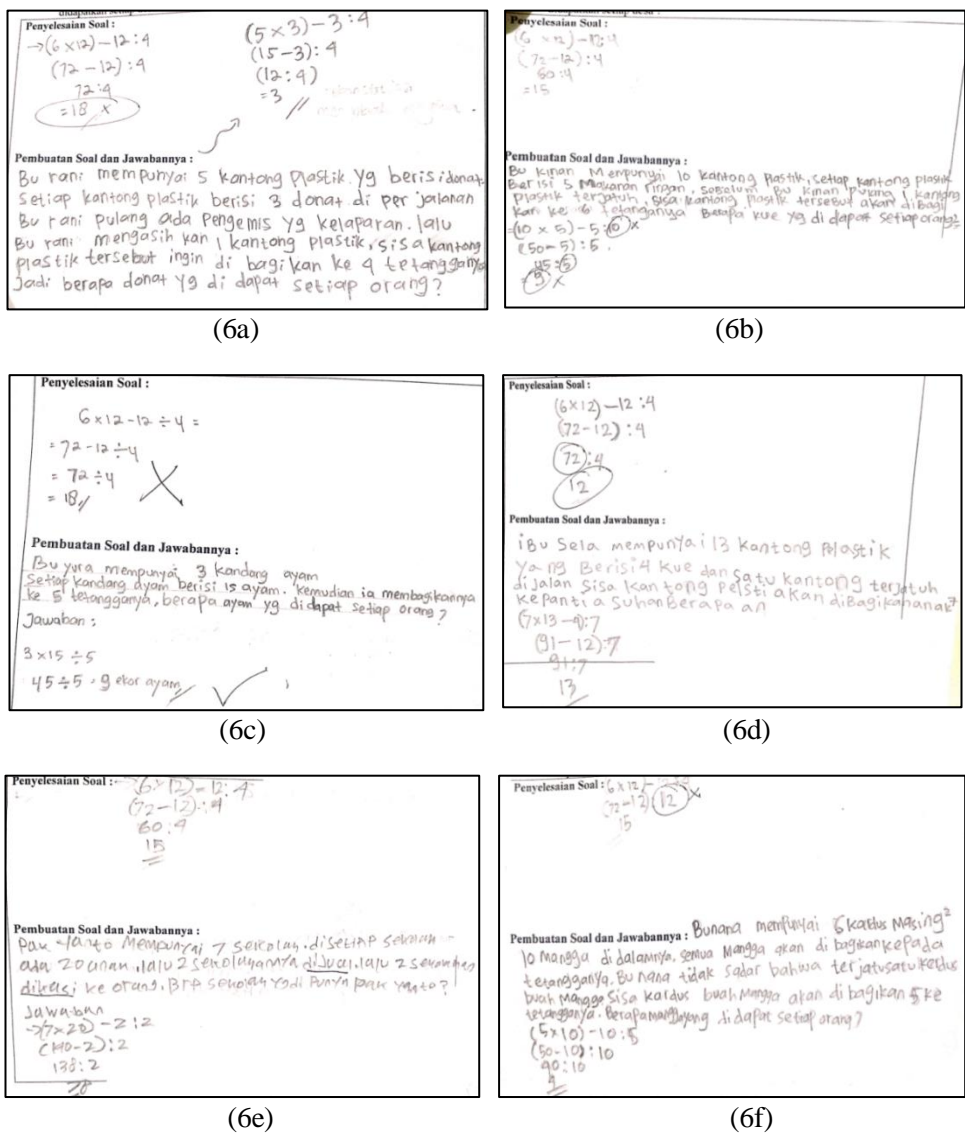 Penyelesaian Soal :
→(6 x 12) - 12 : 4
(72 - 12) : 4
72 : 4
= 18 x
(5 x 3) - 3 : 4
(15 - 3) : 4
(12 : 4)
= 3 //
Pembuatan Soal dan Jawabannya :
Bu rani mempunyai 5 kantong Plastik yg berisi donat.
setiap kantong plastik berisi 3 donat di per jalanan
Bu rani pulang ada Pengemis yg kelaparan. lalu
Bu rani mengasih kan 1 kantong plastik, sisa kantong
plastik tersebut ingin di bagikan ke 4 tetangganya
Jadi berapa donat yg di dapat setiap orang?
(6a)
Penyelesaian Soal :
(6 x 12) - 12 : 4
(72 - 12) : 4
60 : 4
= 15
Pembuatan Soal dan Jawabannya :
Bu kinan Mempunyai 10 kantong Plastik, setiap kantong plastik
Berisi 5 Makanan ringan, sebelum Bu kinan pulang 1 kantong
plastik terjatuh, sisa kantong plastik tersebut akan dibagi
kan ke 6 tetangganya Berapa kue yg di dapat setiap orang?
= (10 x 5) - 5 : 10 x
(50 - 5) : 5
45 : 5
= 9 x
(6b)
Penyelesaian Soal :
6 x 12 - 12 ÷ 4 =
= 72 - 12 ÷ 4
= 72 ÷ 4
= 18 //
Pembuatan Soal dan Jawabannya :
Bu yura mempunyai 3 kandang ayam
setiap kandang ayam berisi 15 ayam. kemudian ia membagikannya
ke 5 tetangganya, berapa ayam yg di dapat setiap orang?
Jawaban :
3 x 15 ÷ 5
45 ÷ 5 = 9 ekor ayam //
(6c)
Penyelesaian Soal :
(6 x 12) - 12 : 4
(72 - 12) : 4
72 : 4
12
Pembuatan Soal dan Jawabannya :
iBu Sela mempunyai 13 kantong Plastik
Yang Berisi 4 kue dan satu kantong terjatuh
dijalan sisa kantong pelsti akan diBagikan
kepanti asuhan Berapa an anak
(7x13 - 4) : 7
(91 - 12) : 7
91 : 7
13
(6d)
Penyelesaian Soal :
(6 x 12) - 12 : 4
(72 - 12) : 4
60 : 4
15
Pembuatan Soal dan Jawabannya :
Pak Yanto Mempunyai 7 . disetiap
ada 20 , lalu 2 dijual, lalu 2
dikasi ke orang. Brp yg di Punya pak yanto?
Jawaban
→(7 x 20) - 2 : 2
(140 - 2) : 2
138 : 2
78
(6e)
Penyelesaian Soal : (6 x 12)
(72 - 12) 12 x
15
Pembuatan Soal dan Jawabannya : Bunana mempunyai 5 kardus Masing²
10 mangga di dalamnya. semua Mangga akan di bagikan kepada
tetangganya. Bu nana tidak sadar bahwa terjatu satu kerdus
buah mangga sisa kardus buah Mangga akan di bagikan 5 ke
tetangganya. Berapa mangga yang di dapat setiap orang?
(5 x 10) - 10 : 5
(50 - 10) : 10
40 : 10
4
(6f)